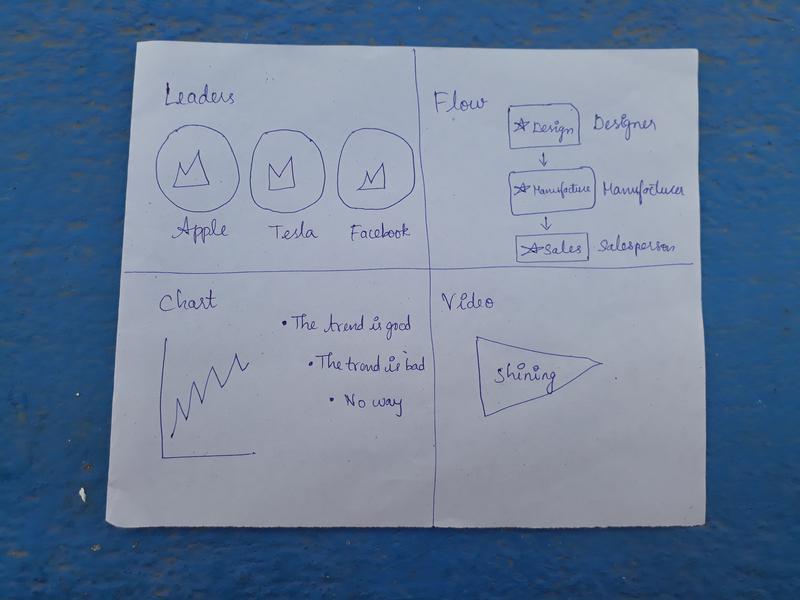 Leaders
Apple Tesla Facebook
Flow
Design Designer
Manufacture Manufacturer
Sales Salesperson
Chart
• The trend is good
• The trend is bad
• No way
Video
Shining